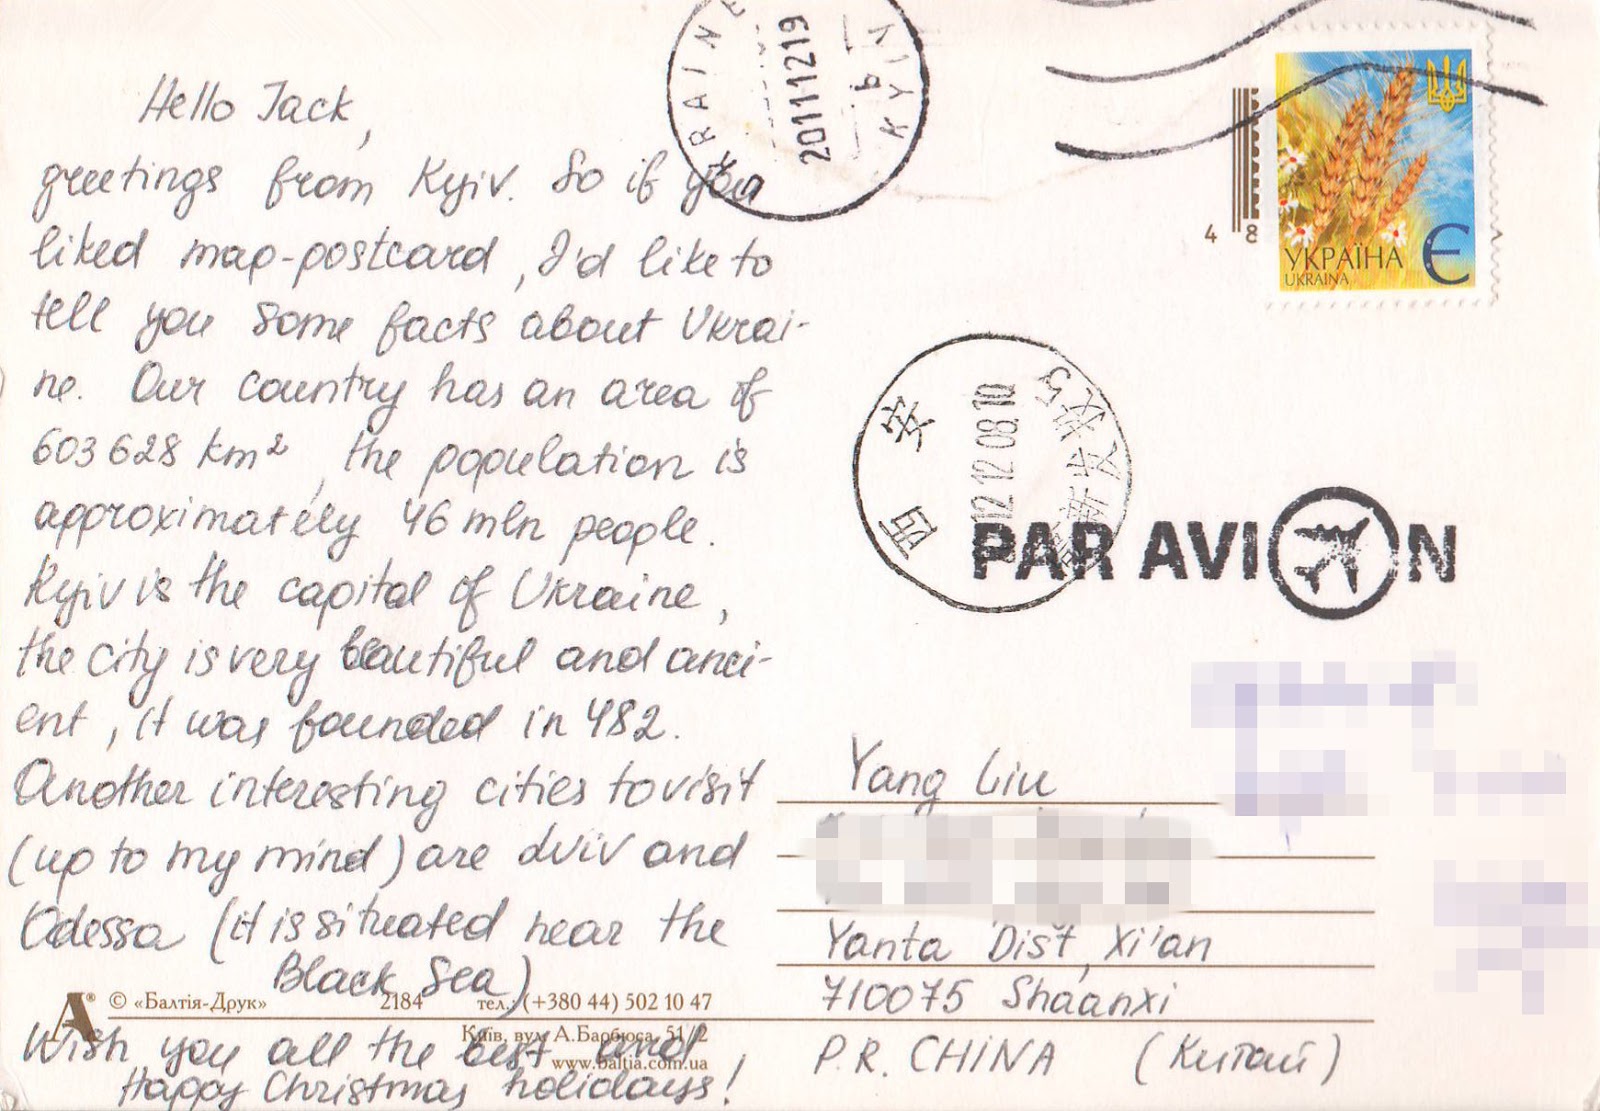 Hello Jack,
greetings from Kyiv. So if you
liked map-postcard, I'd like to
tell you some facts about Ukrai-
ne. Our country has an area of
603 628 km², the population is
approximately 46 mln people.
Kyiv is the capital of Ukraine,
the city is very beautiful and anci-
ent, it was founded in 482.
Another interesting cities to visit
(up to my mind) are Lviv and
Odessa (it is situated near the
Black Sea)
Wish you all the best and
Happy Christmas holidays!
© «Балтія-Друк» 2184 тел.: (+380 44) 502 10 47
Київ, вул. А.Барбюса, 51/2
www.baltia.com.ua
UKRAINE
20111219
KYIV
Ь
48
УКРАЇНА
UKRAINA
Є
西安
12 12 08 10
PAR AVION
Yang Liu
Yanta Dist, Xi'an
710075 Shaanxi
P.R. CHINA (Китай)